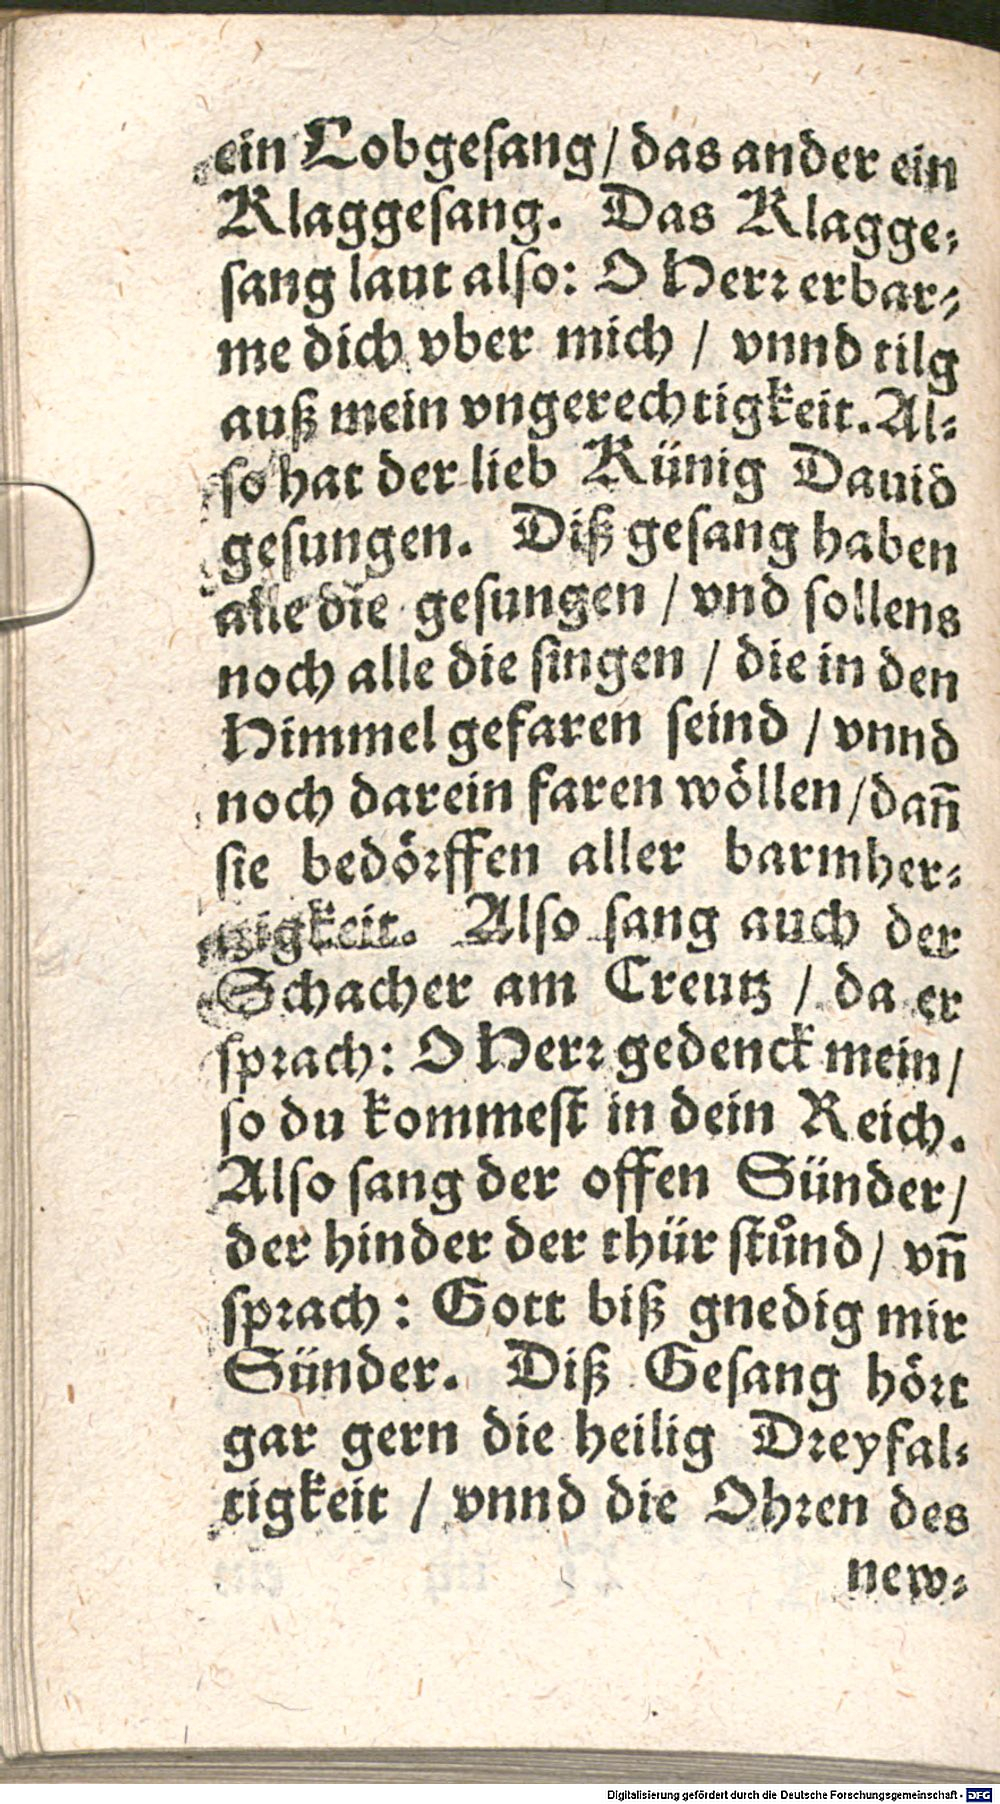 ein Lobgesang / das ander ein
Klaggesang. Das Klagge⸗
sang laut also: O Herr erbar⸗
me dich vber mich / vnnd tilg
auß mein vngerechtigkeit. Al⸗
so hat der lieb Künig Dauid
gesungen. Diß gesang haben
alle die gesungen / vnd sollens
noch alle die singen / die in den
Himmel gefaren seind / vnnd
noch darein faren wöllen / dañ
sie bedörffen aller barmher⸗
tzigkeit. Also sang auch der
Schacher am Creutz / da er
sprach: O Herr gedenck mein /
so du kommest in dein Reich.
Also sang der offen Sünder /
der hinder der thür stůnd / vñ
sprach: Gott biß gnedig mir
Sünder. Diß Gesang hört
gar gern die heilig Dreyfal⸗
tigkeit / vnnd die Ohren des
new⸗
Digitalisierung gefördert durch die Deutsche Forschungsgemeinschaft - DFG